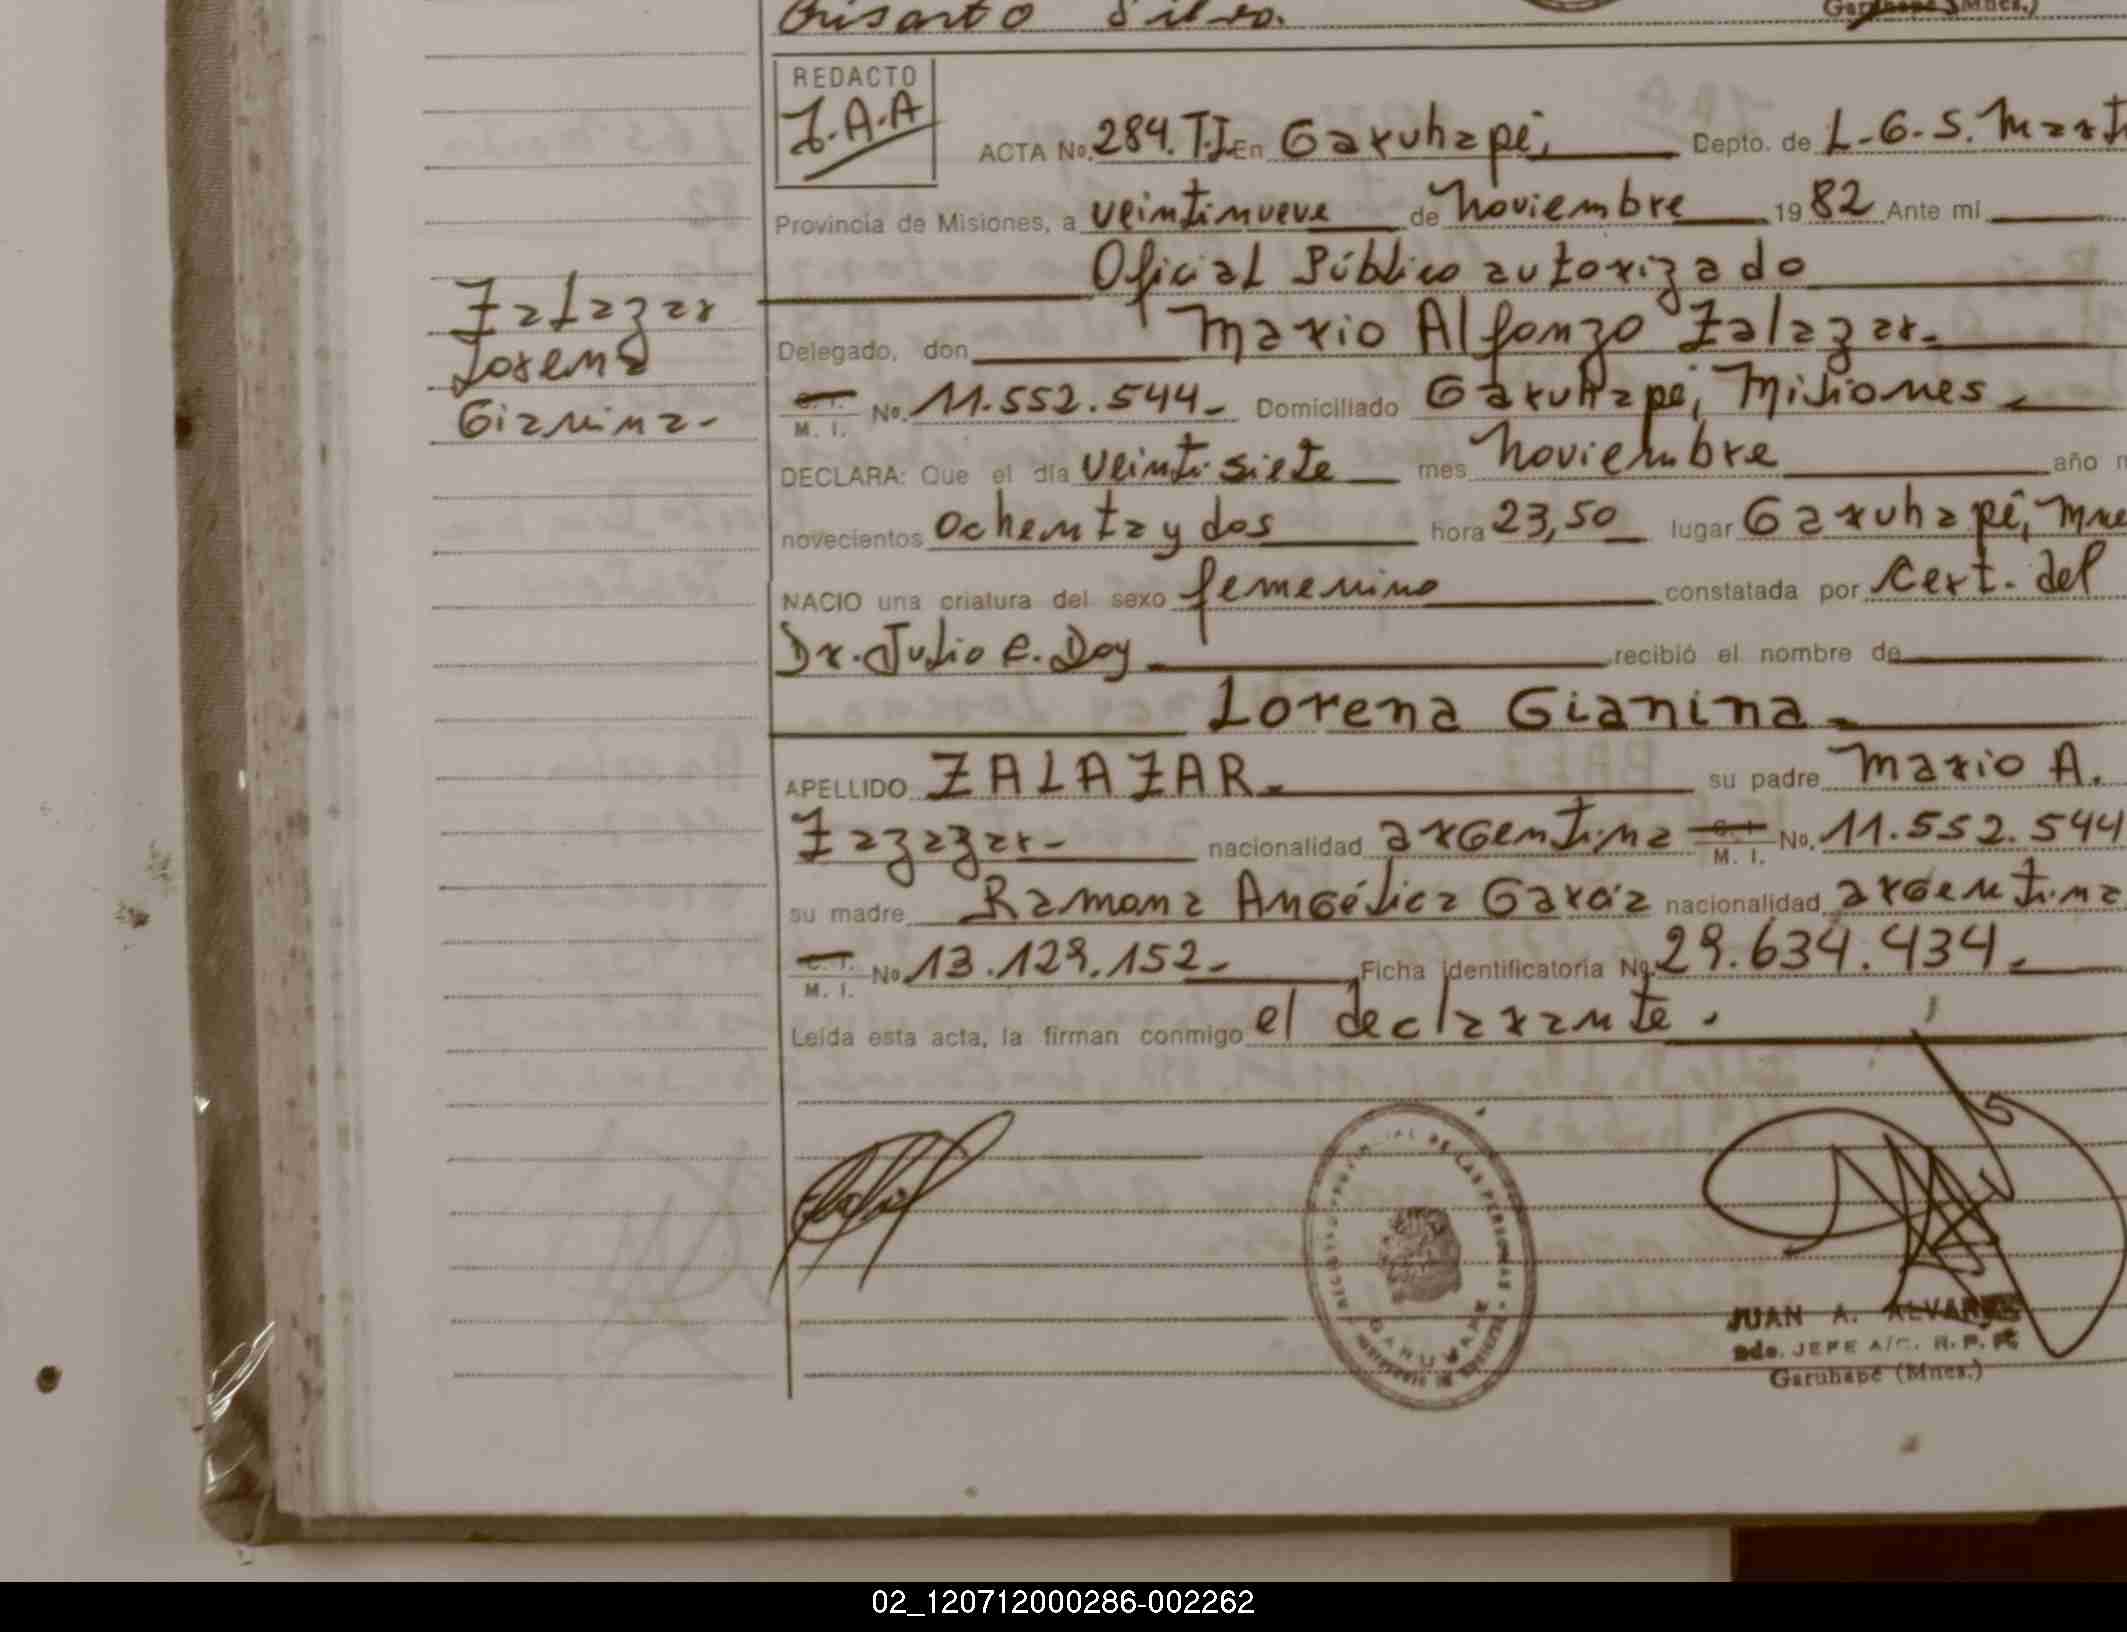 Crisanto Silva.
Garuhapé (Mnes.)
REDACTO
J.A.A
ACTA No. 284. T.I. En Garuhapé, Depto. de L.G.S. Mart
Provincia de Misiones, a veintinueve de noviembre 1982 Ante mi
Oficial Público autorizado
Delegado, don Mario Alfonzo Zalazar.
C. I. M. I. No. 11.552.544. Domiciliado Garuhapé, Misiones
DECLARA: Que el día veintisiete mes noviembre año m
novecientos ochenta y dos hora 23,50 lugar Garuhapé, Mne
NACIO una criatura del sexo femenino constatada por Cert. del
Dr. Julio C. Doy recibió el nombre de
Lorena Gianina
APELLIDO ZALAZAR. su padre Mario A.
Zazazar nacionalidad argentina C. I. M. I. No. 11.552.544
su madre Ramona Angélica García nacionalidad argentina
C. I. M. I. No 13.129.152. Ficha identificatoria No. 29.634.434.
Leída esta acta, la firman conmigo el declarante.
Zalazar
Lorena
Gianina
DE LAS PERSONAS
JUAN A. ALVAREZ
2do. JEFE A/C. R. P. P.
Garuhapé (Mnes.)
02_120712000286-002262